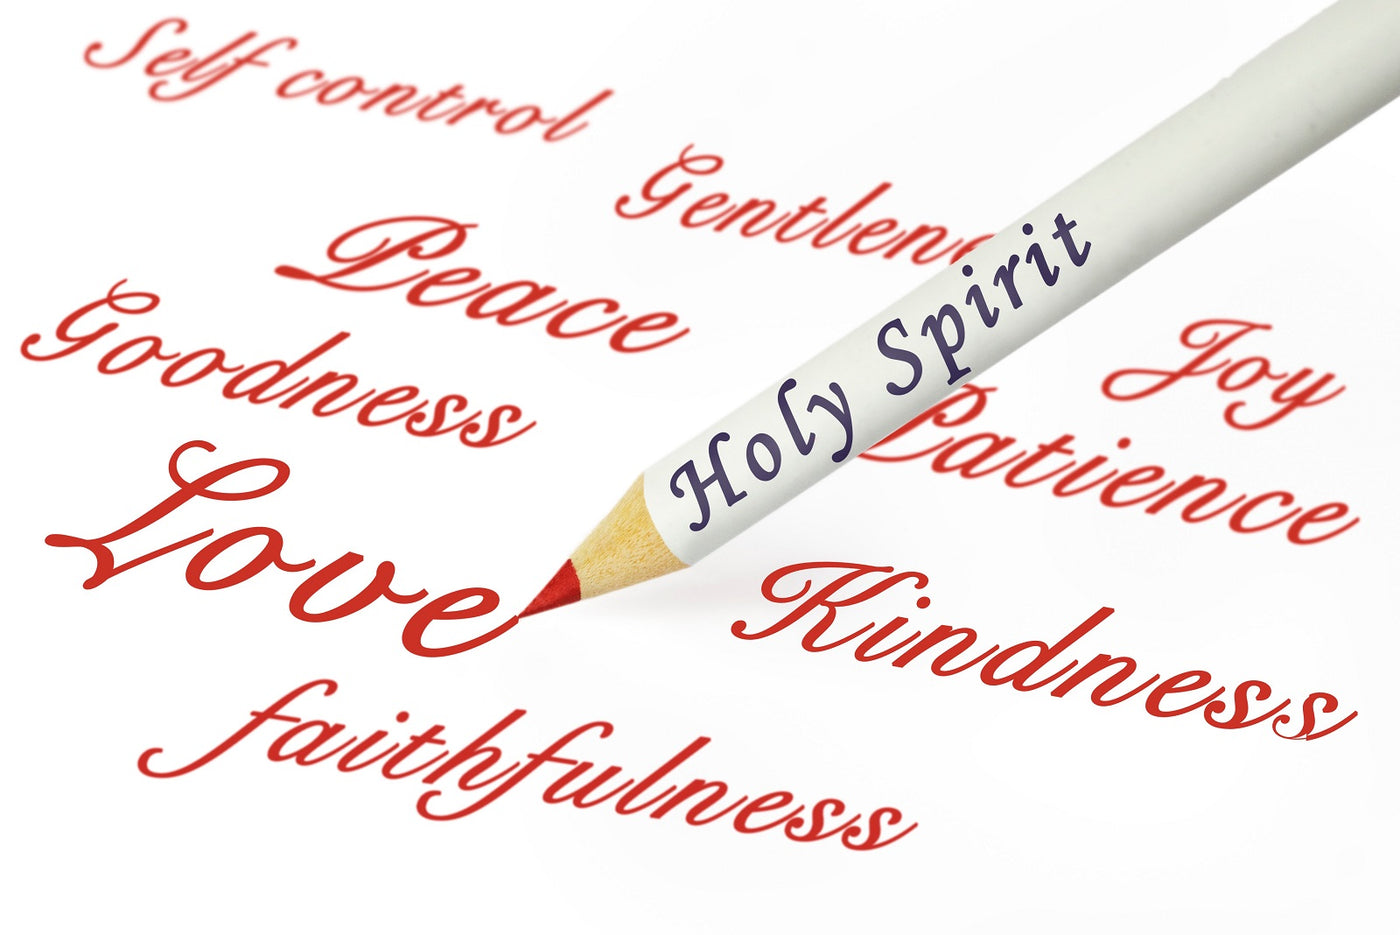 Self control
Gentlene
Peace
Goodness
Holy Spirit
Joy
Patience
Love
Kindness
faithfulness